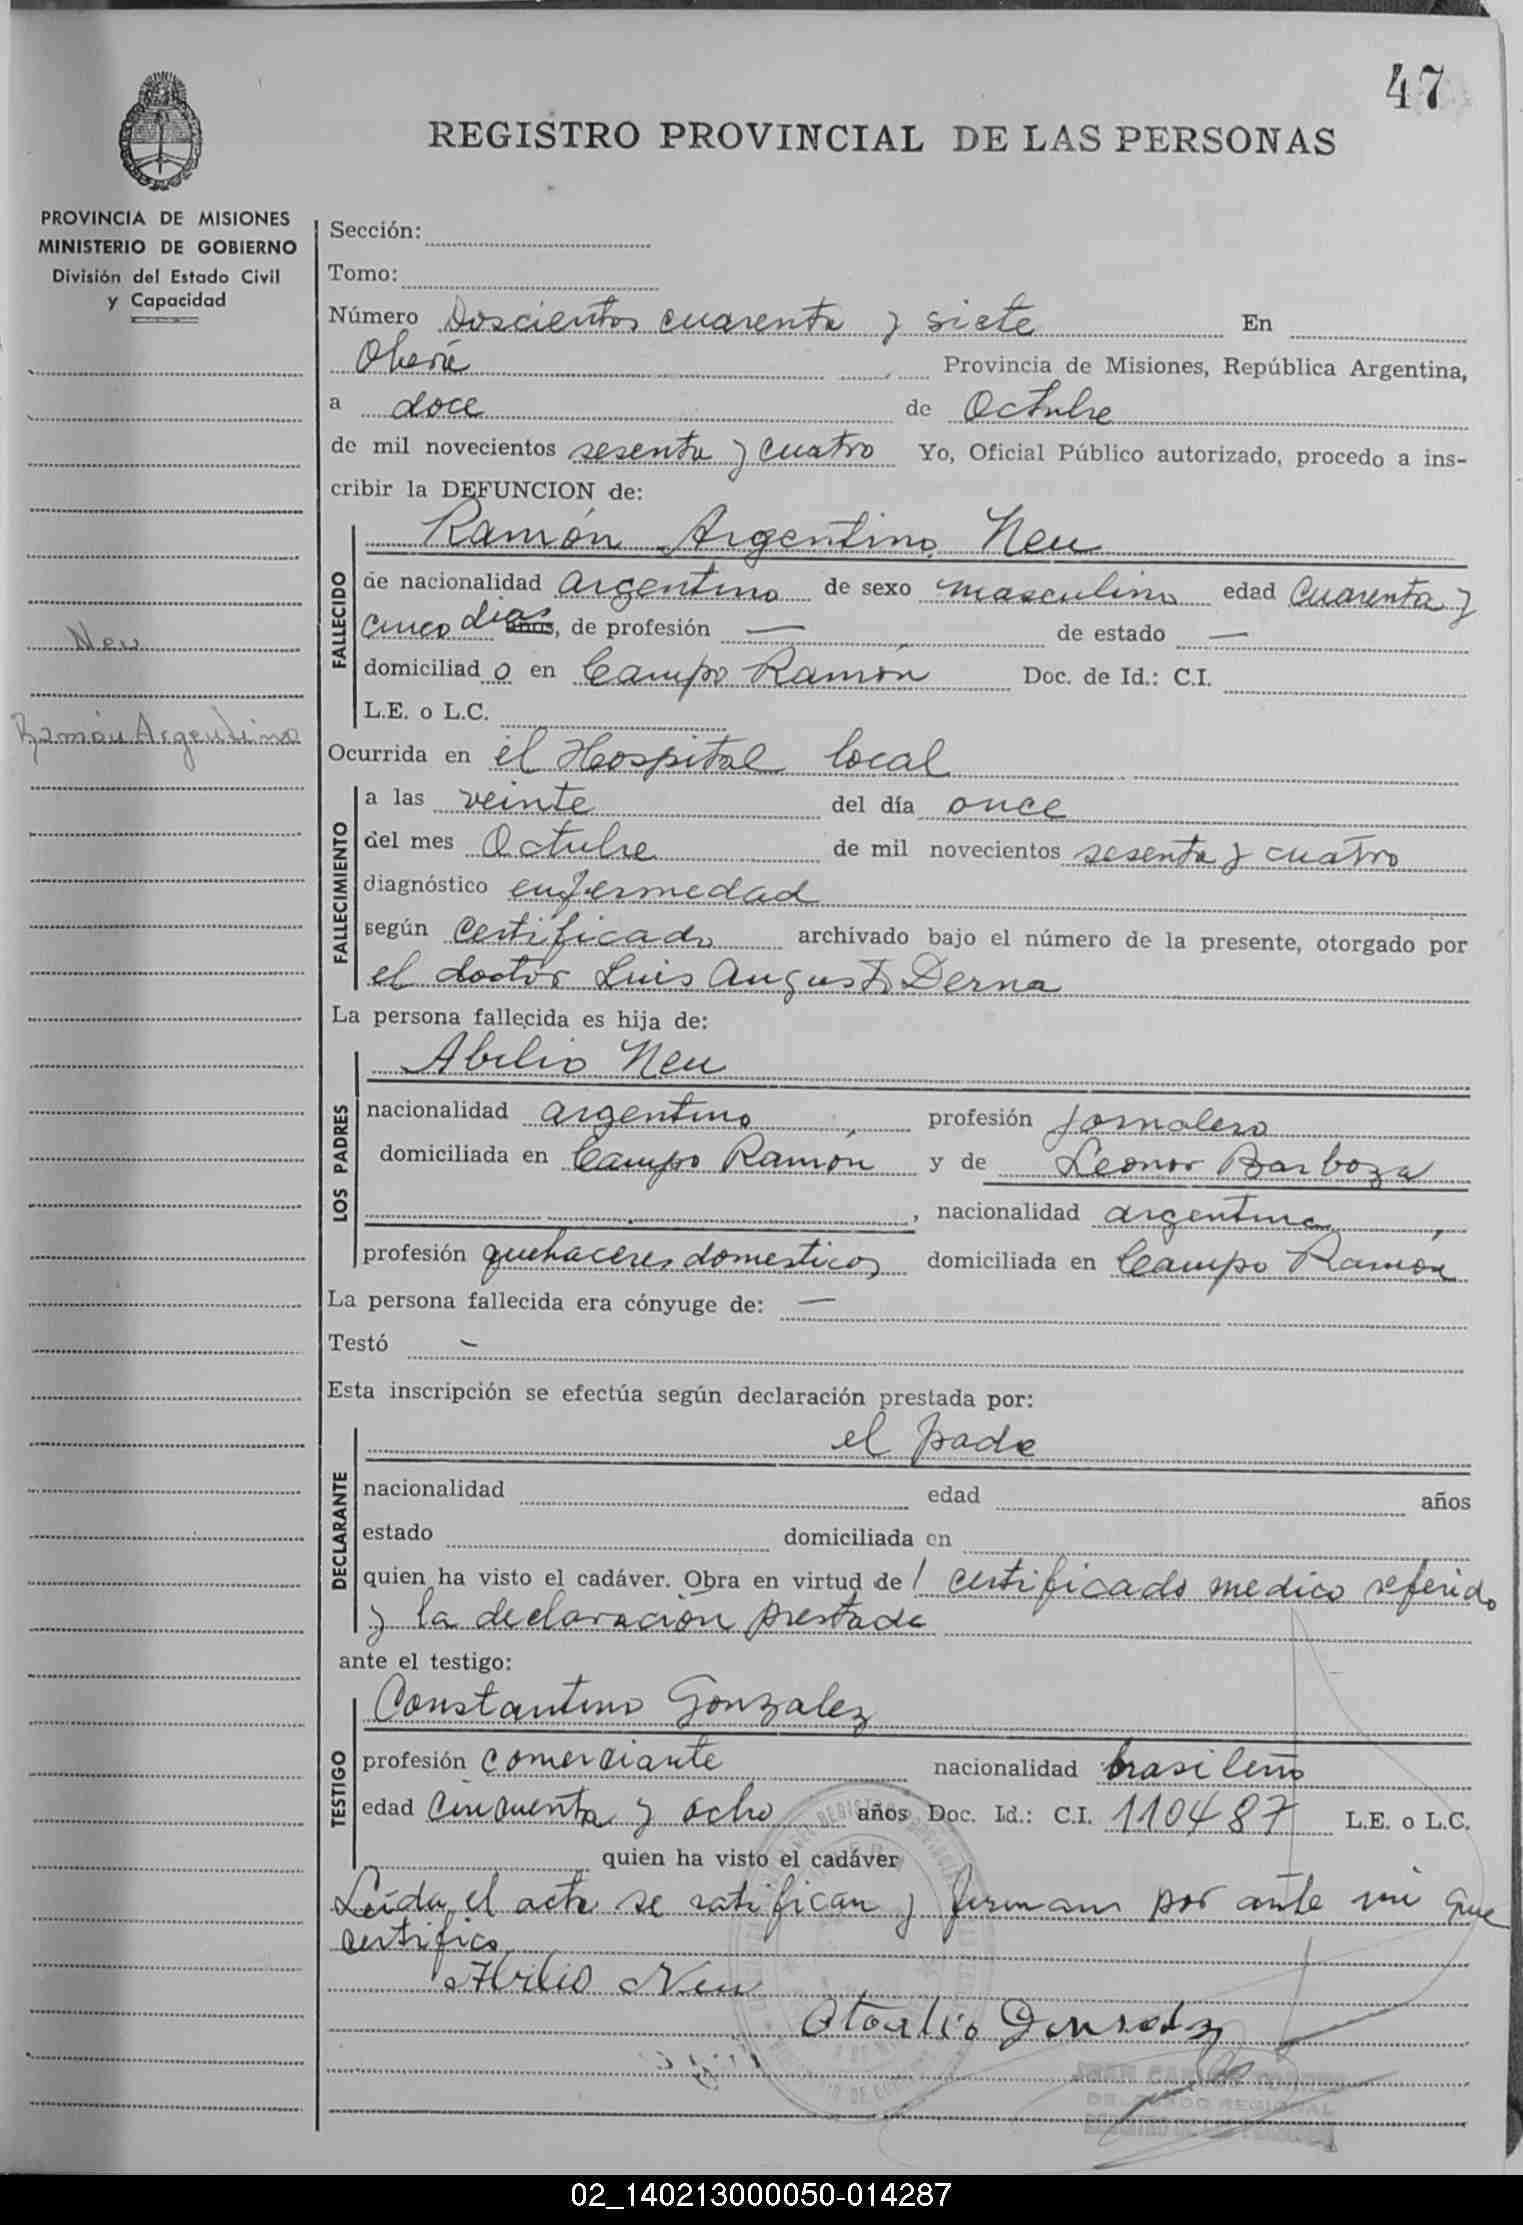 47
REGISTRO PROVINCIAL DE LAS PERSONAS
PROVINCIA DE MISIONES
MINISTERIO DE GOBIERNO
División del Estado Civil
y Capacidad
Neu
Ramón Argentino
Sección:
Tomo:
Número Doscientos cuarenta y siete En
Oberá Provincia de Misiones, República Argentina,
a doce de Octubre
de mil novecientos sesenta y cuatro Yo, Oficial Público autorizado, procedo a ins-
cribir la DEFUNCION de:
FALLECIDO
Ramón Argentino Neu
de nacionalidad argentino de sexo masculino edad Cuarenta y
cinco dias años, de profesión — de estado —
domiciliad o en Campo Ramón Doc. de Id.: C.I.
L.E. o L.C.
Ocurrida en el Hospital local
FALLECIMIENTO
a las veinte del día once
del mes Octubre de mil novecientos sesenta y cuatro
diagnóstico enfermedad
según Certificado archivado bajo el número de la presente, otorgado por
el doctor Luis Augusto Derna
La persona fallecida es hija de:
LOS PADRES
Abilio Neu
nacionalidad argentino profesión jornalero
domiciliada en Campo Ramón y de Leonor Barboza
, nacionalidad argentina
profesión quehaceres domesticos domiciliada en Campo Ramón
La persona fallecida era cónyuge de: —
Testó -
Esta inscripción se efectúa según declaración prestada por:
DECLARANTE
el padre
nacionalidad edad años
estado domiciliada en
quien ha visto el cadáver. Obra en virtud de l certificado medico referido
y la declaración prestada
ante el testigo:
TESTIGO
Constantino Gonzalez
profesión comerciante nacionalidad brasileño
edad cincuenta y ocho años Doc. Id.: C.I. 110487 L.E. o L.C.
quien ha visto el cadáver
Leída el acta se ratifican y firman por ante mi que
certifico
Abilio Neu
JUAN CARLOS TORRES
DELEGADO REGIONAL
REGISTRO DE LAS PERSONAS
02_140213000050-014287